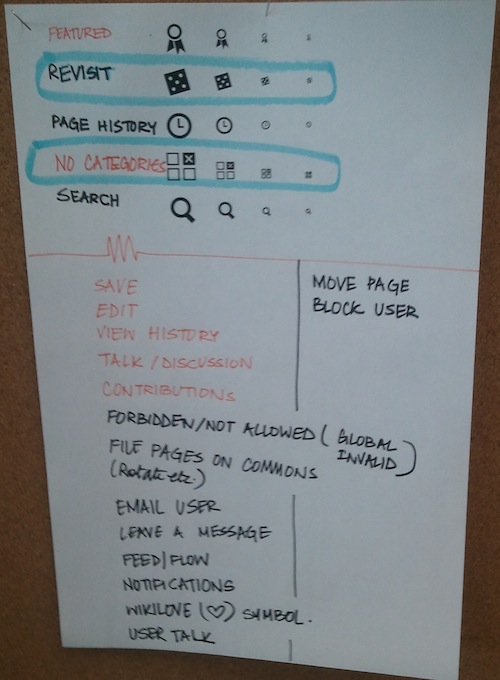 FEATURED
REVISIT
PAGE HISTORY
NO CATEGORIES
SEARCH
SAVE
EDIT
VIEW HISTORY
TALK / DISCUSSION
CONTRIBUTIONS
MOVE PAGE
BLOCK USER
FORBIDDEN/NOT ALLOWED (GLOBAL INVALID)
FILE PAGES ON COMMONS
(Rotate etc.)
EMAIL USER
LEAVE A MESSAGE
FEED/FLOW
NOTIFICATIONS
WIKILOVE (♡) SYMBOL.
USER TALK